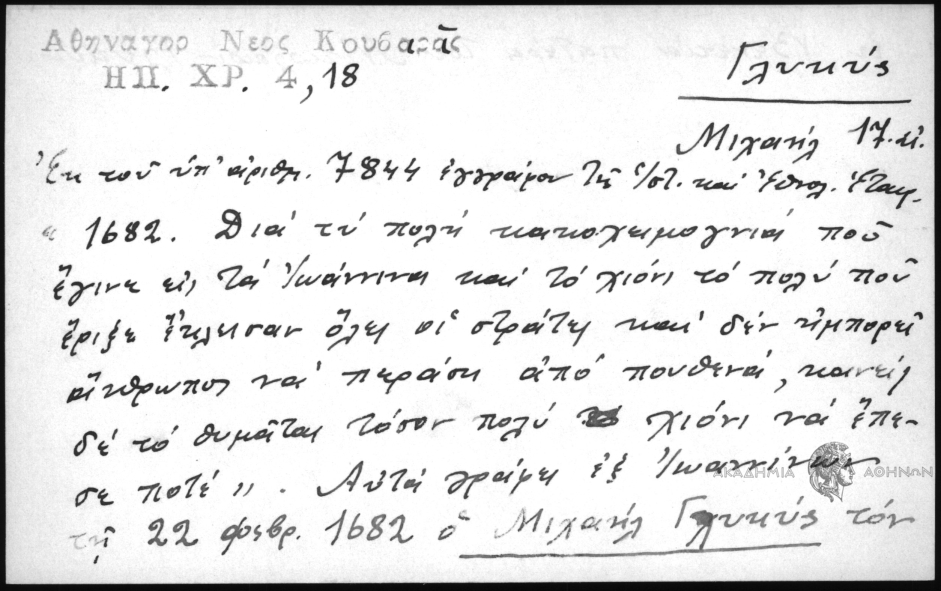 Ἀθηναγορ Νεος Κουβαρᾶς
ΗΠ. ΧΡ. 4, 18
Γλυκύς
Μιχαήλ 17. αἰ.
Ἐκ τοῦ ὑπ' ἀριθμ. 7844 ἐγγράφου τῆς Ἱστ. καί Ἐθνολ. Ἑταιρ.
" 1682. Διά τό πολή κακοχειμογνιά ποῦ
ἔγινε εἰς τά Ἰωάννινα καί τό χιόνι τό πολύ ποῦ
ἔριξε ἔκλεισαν ὅλες οἱ στράτες καί δέν ἠμπορεῖ
ἄνθρωπος νά περάση ἀπό πουθενά, κανείς
δέ τό θυμᾶται τόσον πολύ χιόνι νά ἔπε-
σε ποτέ". Αὐτά γράφει ἐξ Ἰωαννίνων
τῇ 22 φεβρ. 1682 ὁ Μιχαήλ Γλυκύς τόν
ΑΚΑΔΗΜΙΑ ΑΘΗΝΩΝ